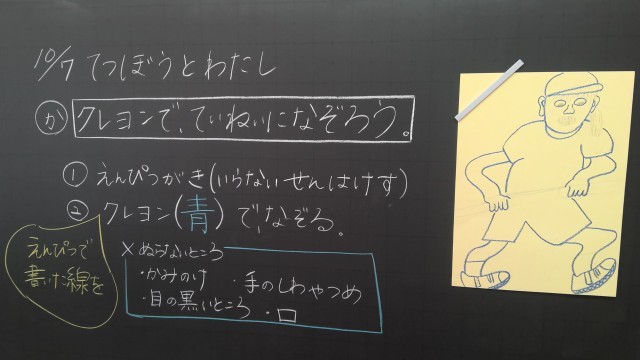 10/7 てつぼうとわたし
か クレヨンで、ていねいになぞろう。
① えんぴつがき(いらないせんはけす)
② クレヨン(青)で、なぞる。
えんぴつで
書けた線を
× ぬらないところ
・かみのけ ・手のしわやつめ
・目の黒いところ ・口